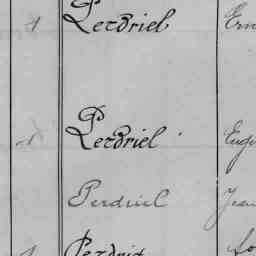 1 Perdriel Ern
1 Perdriel Eug
Perdriel Jean
1 Perdrix